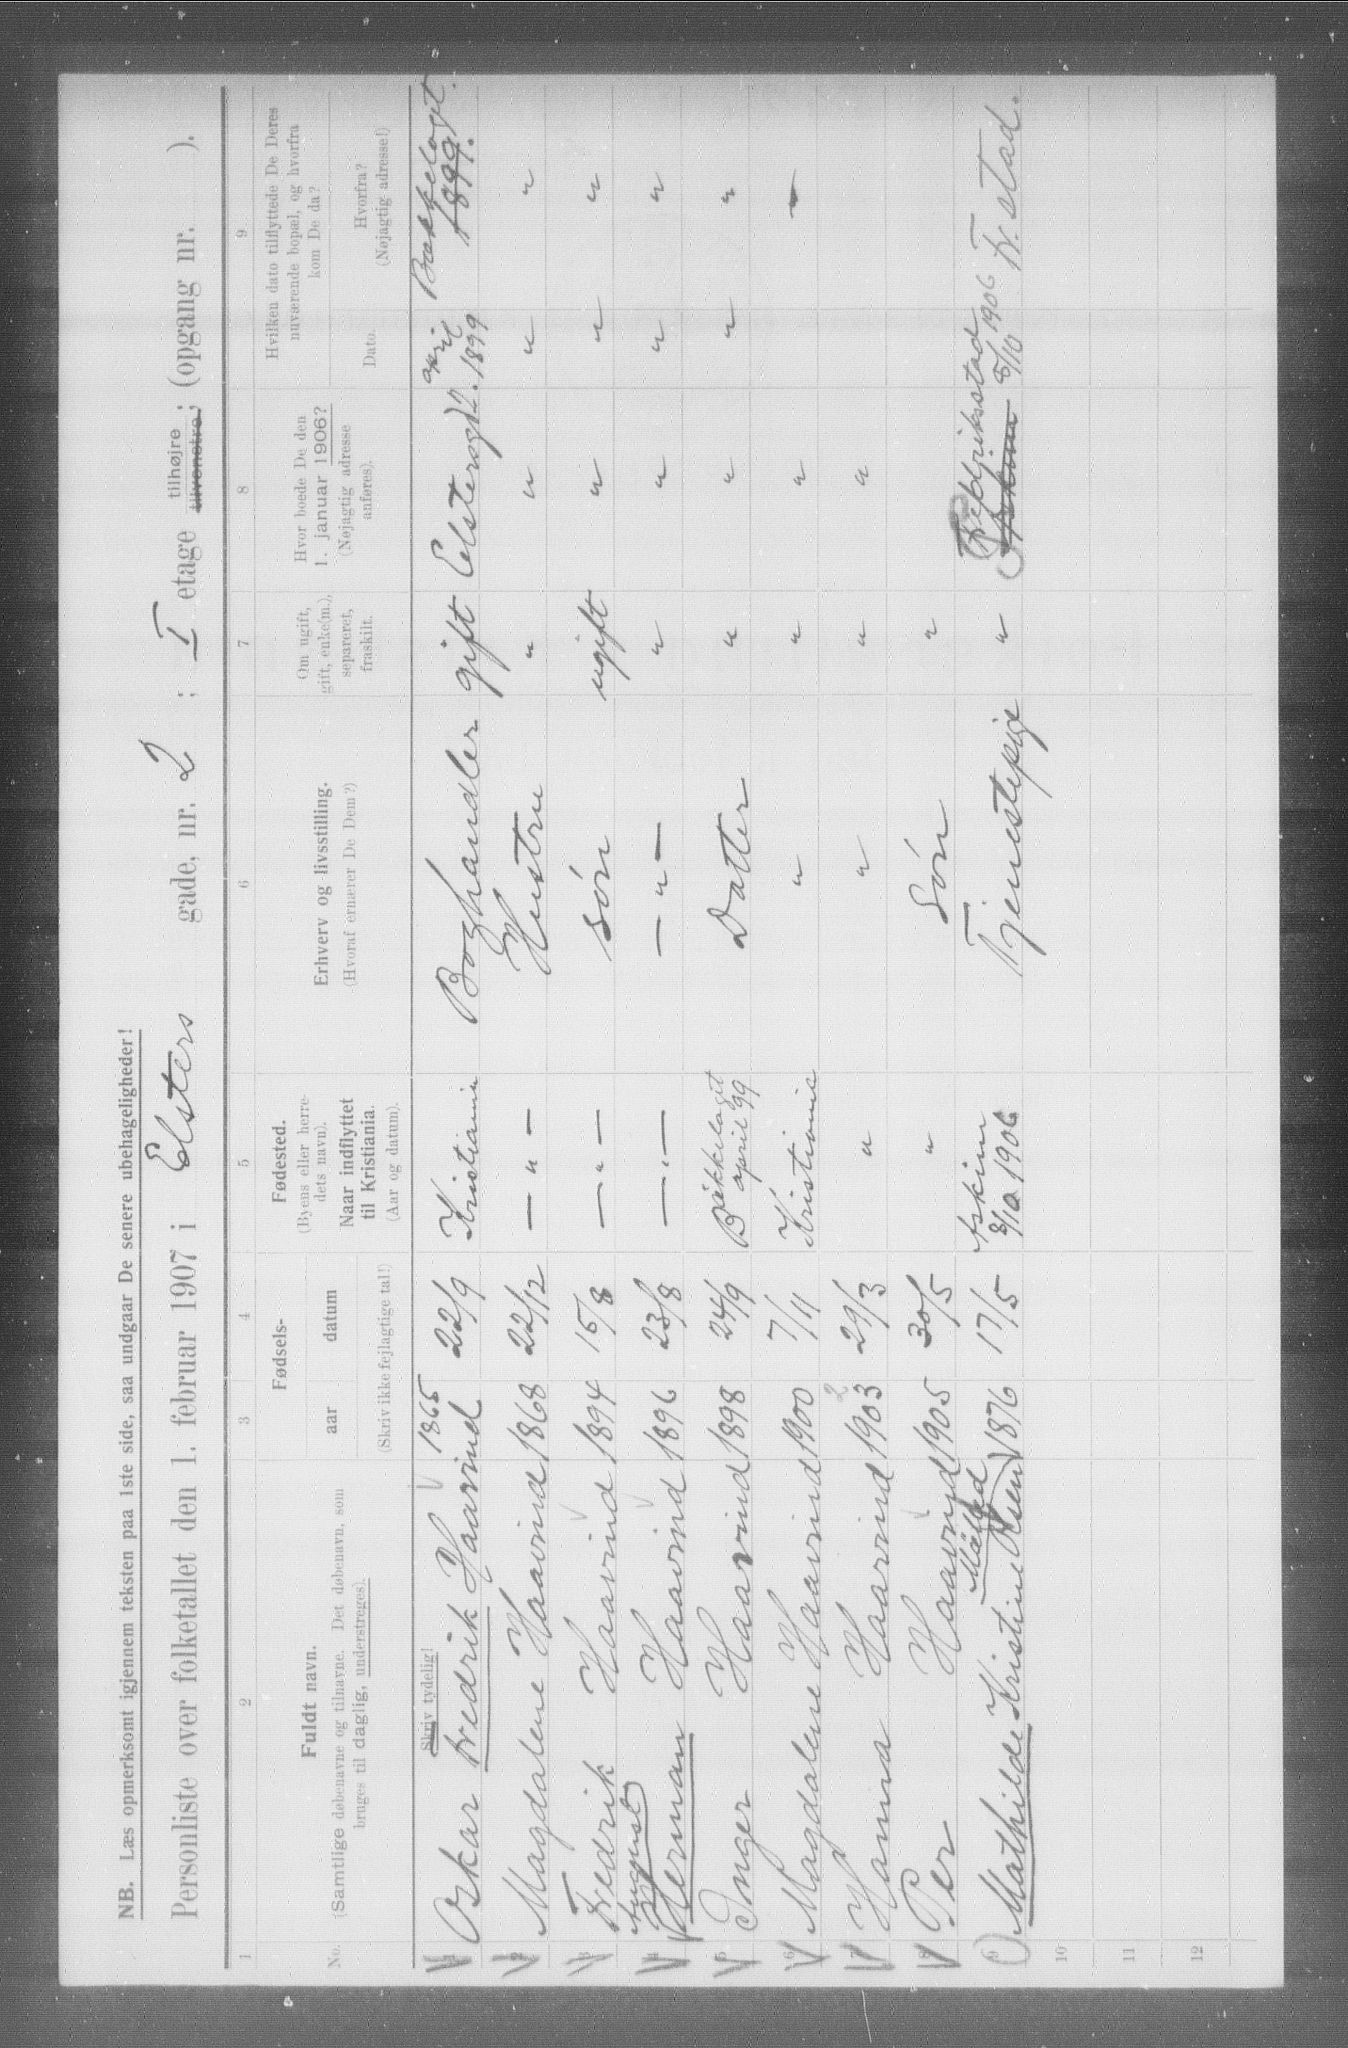 NB. Læs opmerksomt igjennem teksten paa 1ste side, saa undgaar De senere ubehageligheder!
Personliste over folketallet den 1. februar 1907 i Elsters gade, nr. 2 ; I etage tilhøjre tilvenstre; (opgang nr. ).
1 2 3 4 5 6 7 8 9
No.
Fuldt navn.
(Samtlige døbenavne og tilnavne. Det døbenavn, som
bruges til daglig, understreges).
Fødsels-
aar datum
(Skriv ikke fejlagtige tal!)
Fødested.
(Byens eller herre-
dets navn).
Naar indflyttet
til Kristiania.
(Aar og datum).
Erhverv og livsstilling.
(Hvoraf ernærer De Dem?)
Om ugift,
gift, enke(m.),
separeret,
fraskilt.
Hvor boede De den
1. januar 1906?
(Nøjagtig adresse
anføres).
Hvilken dato tilflyttede De Deres
nuværende bopæl, og hvorfra
kom De da?
Dato.
Hvorfra?
(Nøjagtig adresse!)
Skriv tydelig!
1 Oskar Fredrik Haavind 1865 22/9 Kristiania Boghandler gift Elstersgt 2. april 1899 Bækkelagt. 1899.
2 Magdalene Haavind 1868 22/12 — " — Hustru " " " "
3 Fredrik Haavind 1894 15/8 — " — søn ugift " " "
4 Herman Haavind 1896 23/8 — " — — " — " " " "
5 Inger Haavind 1898 24/9 Bækkelaget april 99 Datter " " " "
6 Magdalene Haavind 1900 7/11 Kristiania " " " "
7 Hanna Haavind 1903 2 29/3 " " " "
8 Per Haavind 1905 30/5 " Søn "
9 Mathilde Kristine 1876 17/5 Askim 8/10 1906 Tjenestepige " Fredriksstad Askim 8/10 1906 Fr. stad.
10
11
12